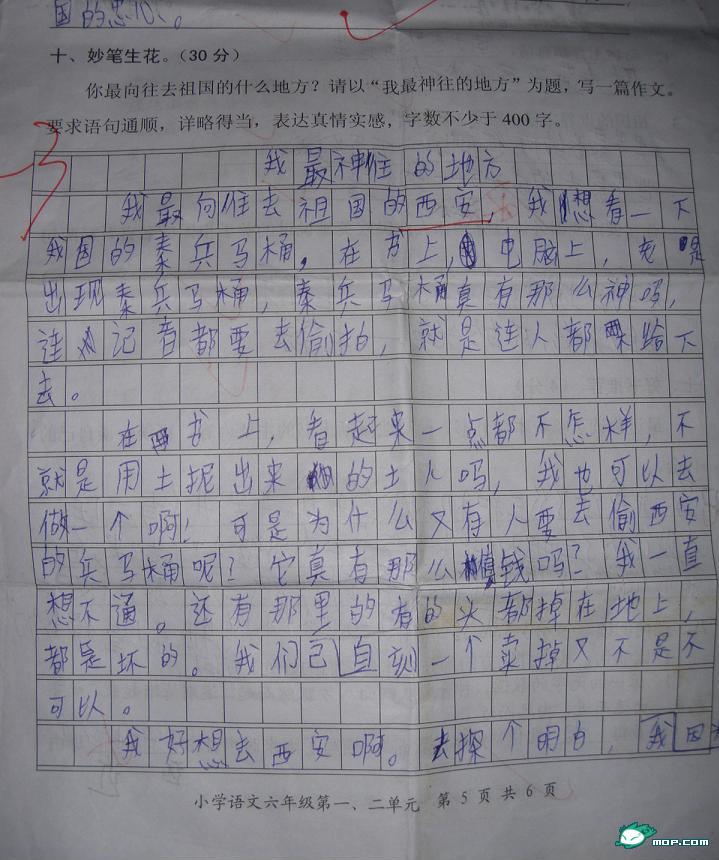 国的忠心。
十、妙笔生花。（30 分）
你最向往去祖国的什么地方？请以“我最神往的地方”为题，写一篇作文。
要求语句通顺，详略得当，表达真情实感，字数不少于 400 字。
我最神往的地方
我最向往去祖国的西安，我想看一下
我国的秦兵马桶。在书上，电脑上，老是
出现秦兵马桶，秦兵马桶真有那么神吗，
连记者都要去偷拍，就是连人都要跪下
去。
在书上，看起来一点都不怎样，不
就是用土扼出来的土人吗，我也可以去
做一个啊！可是为什么又有人要去偷西安
的兵马桶呢？它真有那么值钱吗？我一直
想不通。还有那里的有的头都掉在地上，
都是坏的。我们己自刻一个卖掉又不是不
可以。
我好想去西安啊。去探个明白，我因
小学语文六年级第一、二单元 第 5 页 共 6 页
mop.com